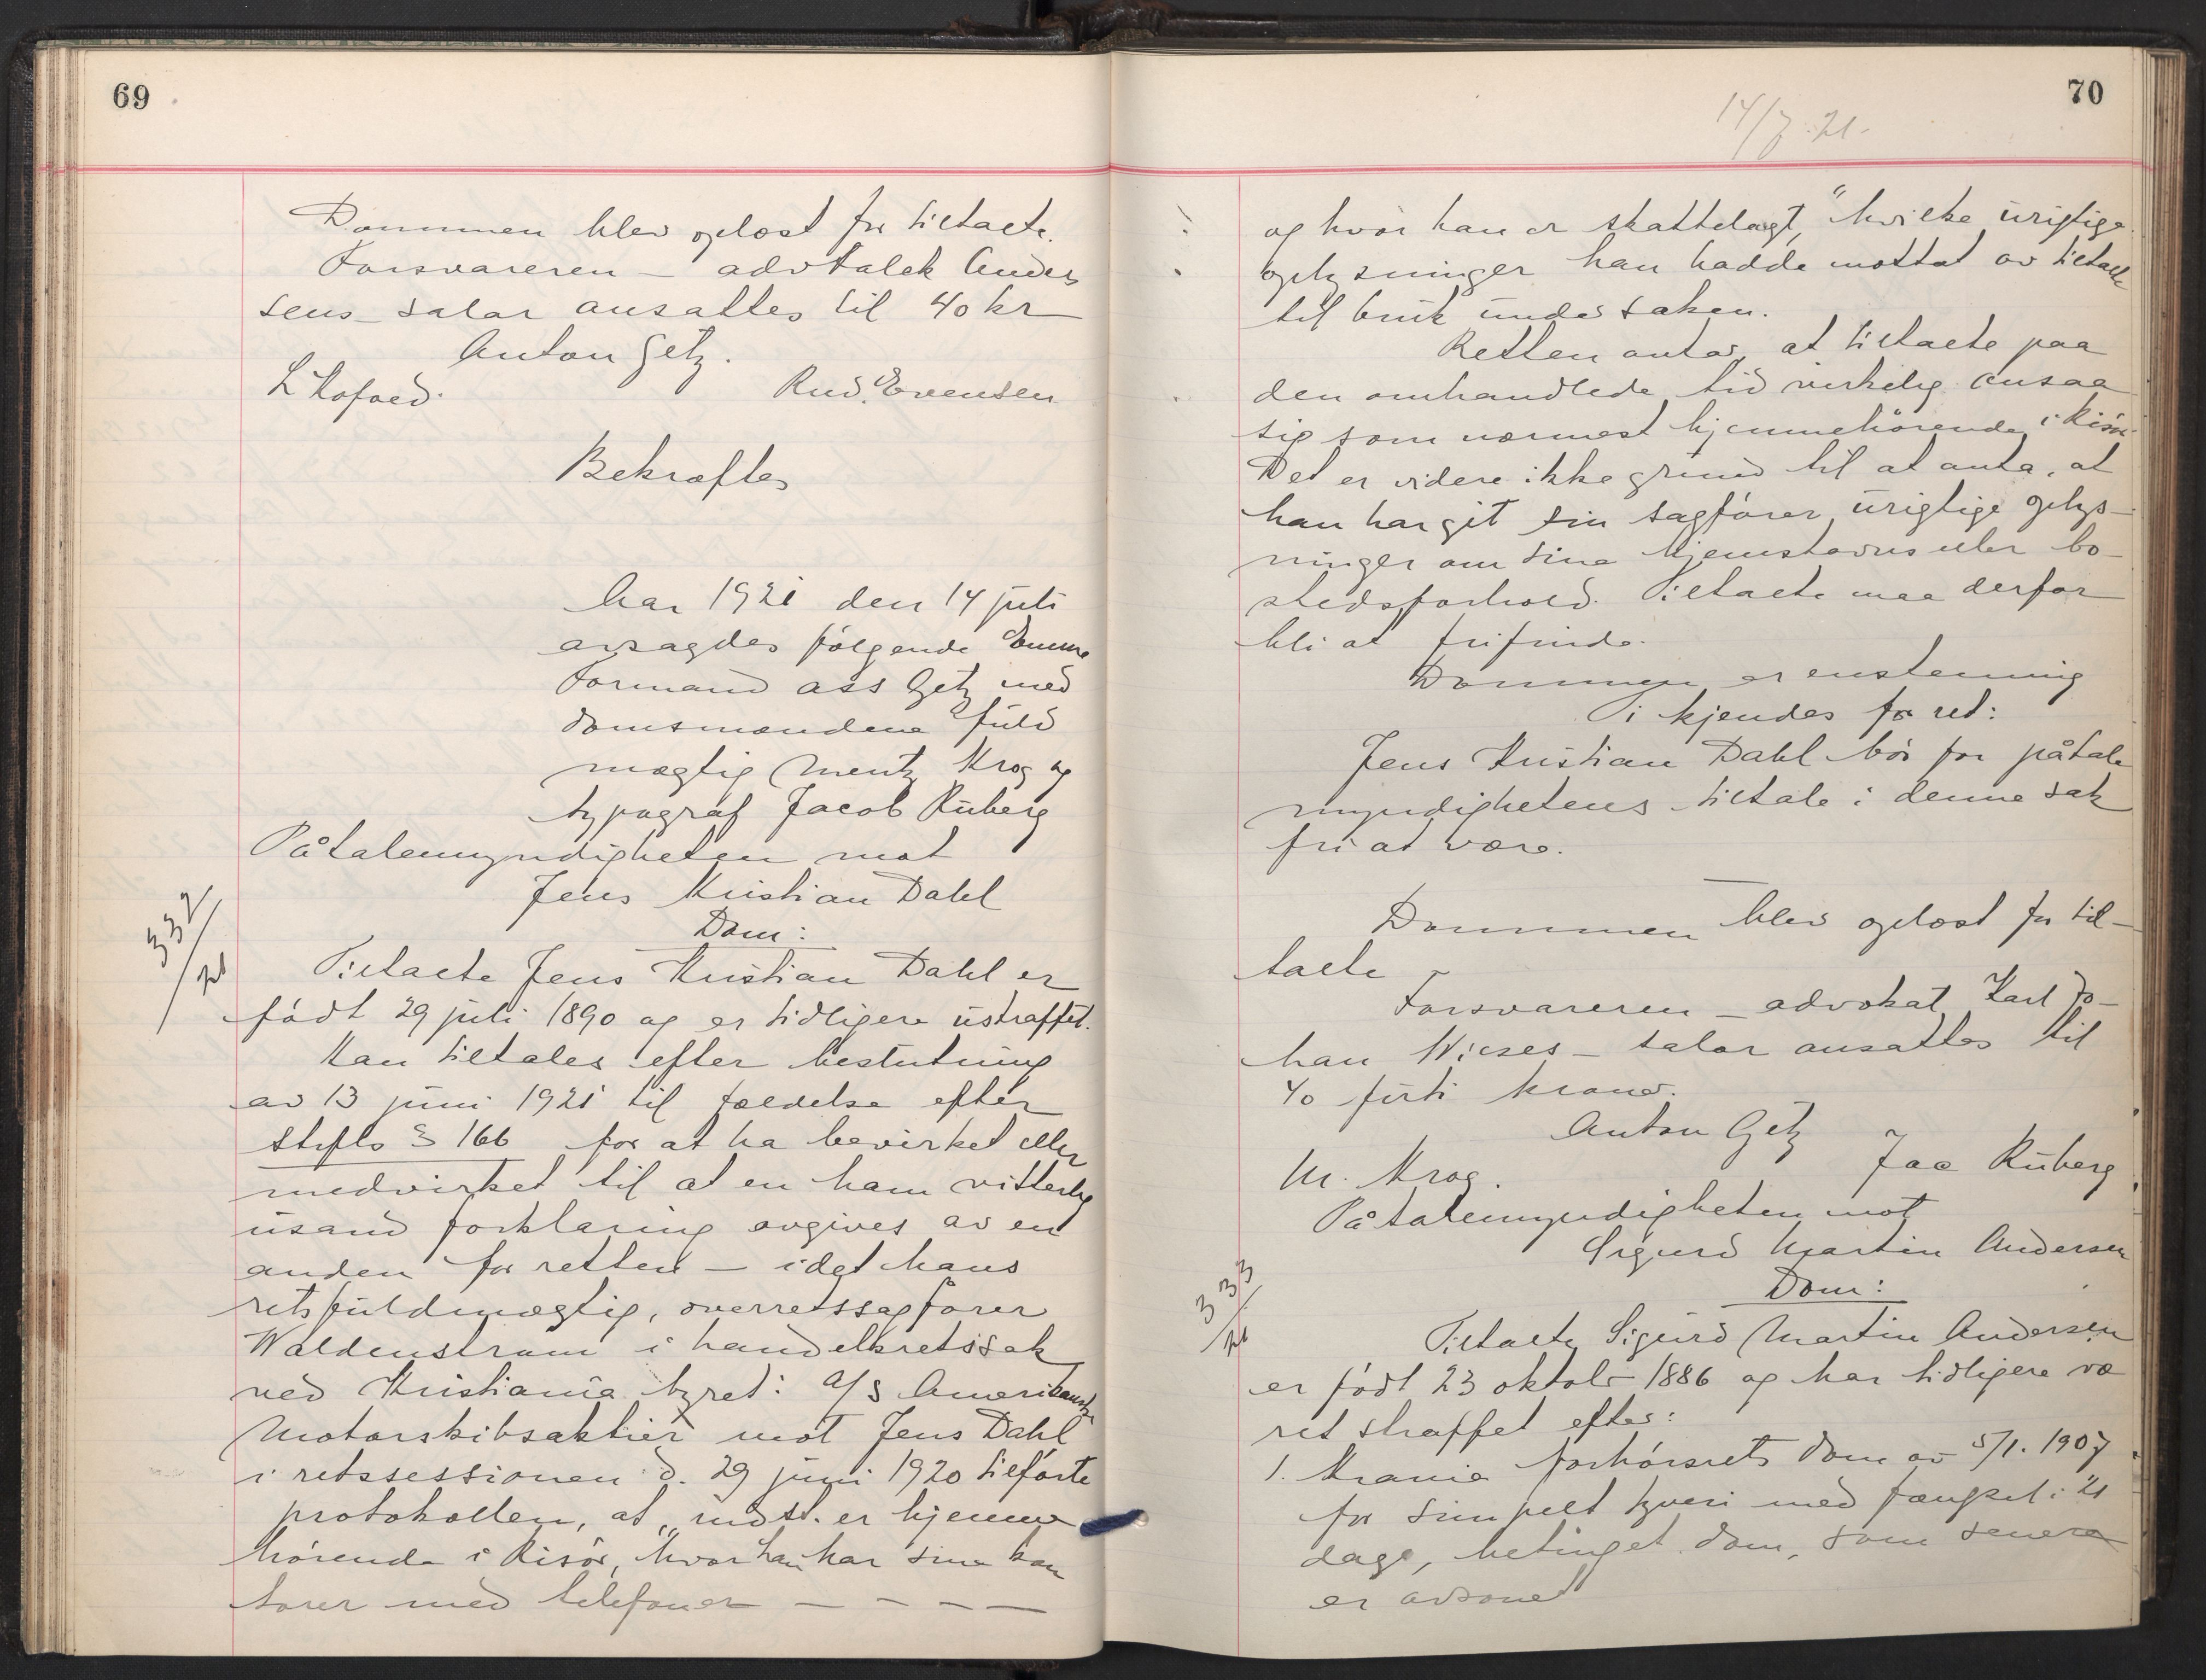 69
Dommen blev oplæst for tiltalte.
Forsvareren – advokat Ander
sens – salær ansattes til 40 kr
Anton Getz.
L Hofoed. Rud. Evensen
Bekræftes
Aar 1921 den 14 juli
avsagdes følgende Emme
Formand ass Getz med
domsmændene fuld
mægtig Mentz Krog og
typograf Jacob Ruberg
Påtalemyndigheten mot
Jens Kristian Dahl
332/21
Dom:
Tiltalte Jens Kristian Dahl er
født 29 juli 1890 og er tidligere ustraffet.
Han tiltales efter beslutning
av 13 juni 1921 til fældelse efter
strfls § 166 for at ha bevirket eller
medvirket til at en ham vitterlig
usand forklaring avgives av en
anden for retten – idet hans
retsfuldmægtig, overretssagfører
Waldenstrøm i handelsretssak
ved Kristiania byret: A/S Amerikansk
Motorskibsaktier mot Jens Dahl
i retssessionen d. 29 juni 1920 tilførte
protokollen, at „indst. er hjemme
hørende i Risør, hvor han har sine kon
torer med telefoner – – – –
70
14/7.21.
og hvor han er skattelagt," hvilke urigtige
oplysninger han hadde mottat av tiltalte
til bruk under saken.
Retten antar, at tiltalte paa
den omhandlede tid virkelig ansaa
sig som nærmest hjemmehörende i Risør.
Det er videre ikke grund til at anta, at
han har git sin sagfører urigtige oplys-
ninger om sine hjemstavns eller bo-
stedsforhold. Tiltalte maa derfor
bli at frifinde.
Dommen er enstemmig
Ti kjendes for ret:
Jens Kristian Dahl bør for påtale
myndighetens tiltale i denne sak
fri at være.
Dommen blev oplæst for til-
talte
Forsvareren – advokat Karl Jo-
han Wieses – salær ansattes til
40 førti kroner.
Anton Getz
M. Krog. Jac Ruberg
Påtalemyndigheten mot
Sigurd Martin Andersen
333/21
Dom:
Tiltalte Sigurd Martin Andersen
er født 23 oktober 1886 og har tidligere væ
ret straffet efter:
1. Krania forhørsrets dom av 5/1. 1907
for simpelt tyveri med fængsel i 21
dage, betinget dom, som senere
er avsonet